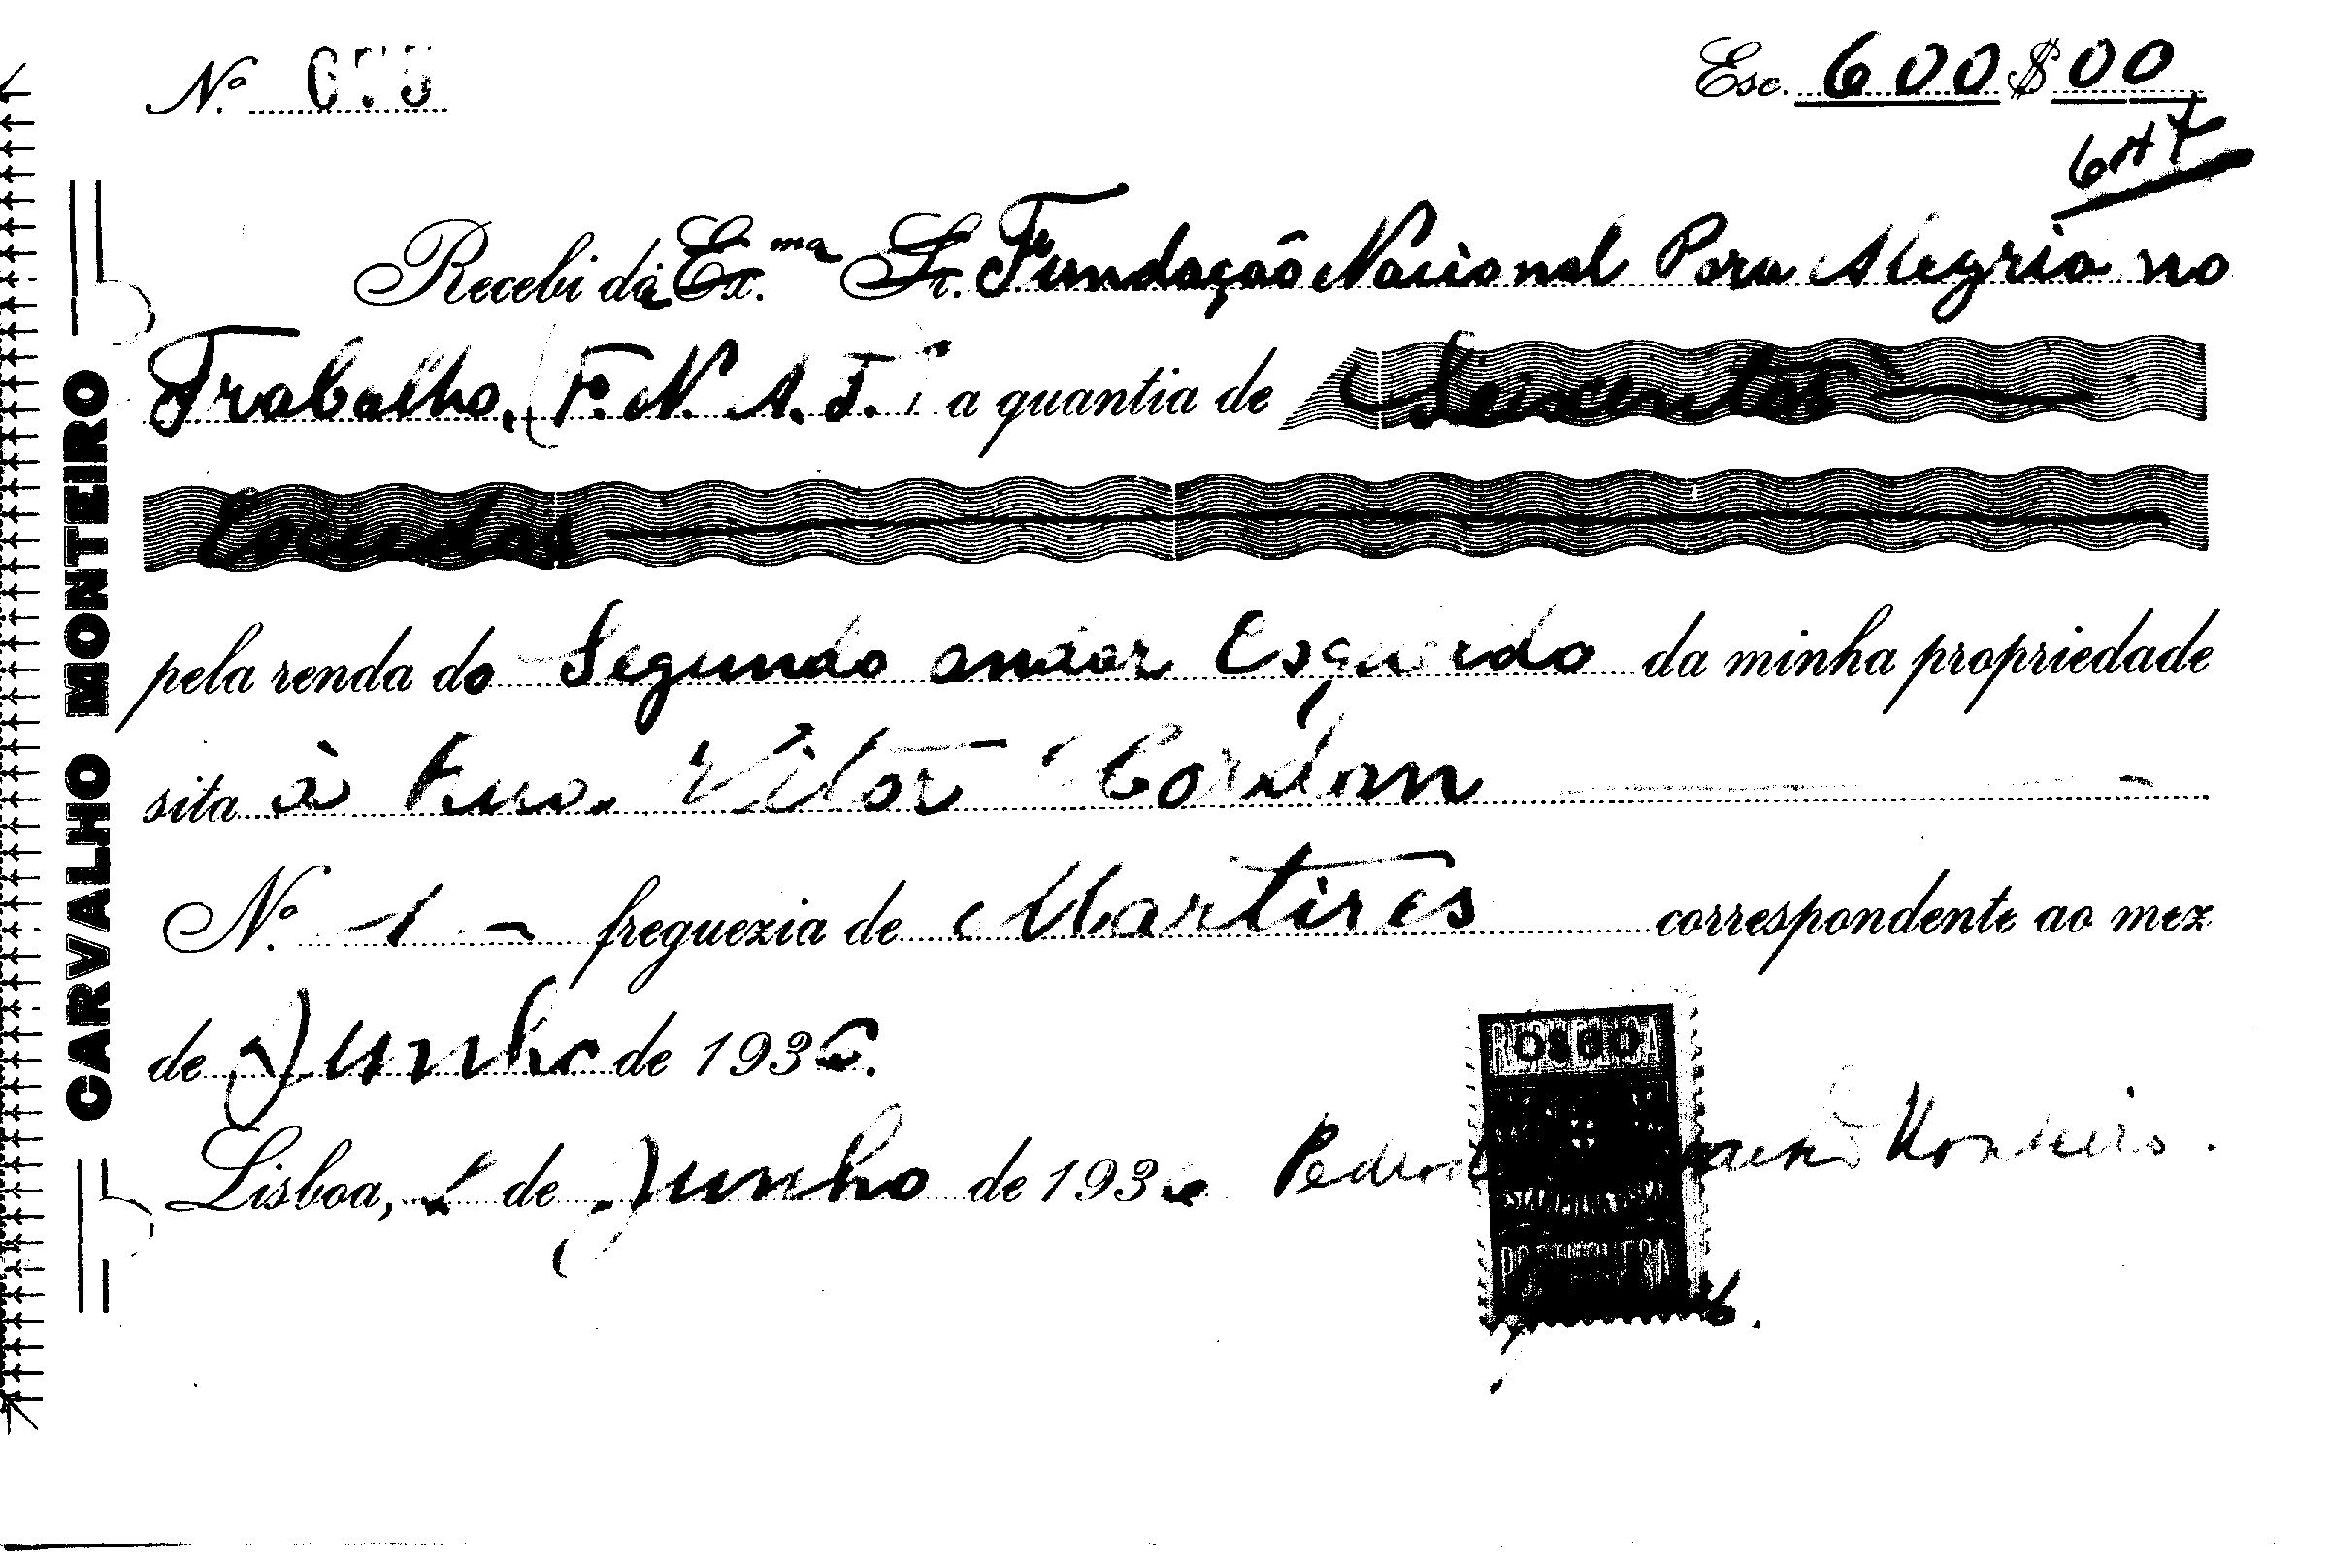 Nº
Esc. 600$00
Recebi da Ex.ma Sr. Fundação Nacional Para Alegria no
Trabalho, (F. N. A. T.) a quantia de Seiscentos
Escudos
pela renda do Segundo andar Esquerdo da minha propriedade
sita à Rua Vitor Cordon
Nº 1 freguezia de Martires correspondente ao mez
de Junho de 1936.
Lisboa, 1 de Junho de 1936 Pedro Monteiro.
CARVALHO MONTEIRO